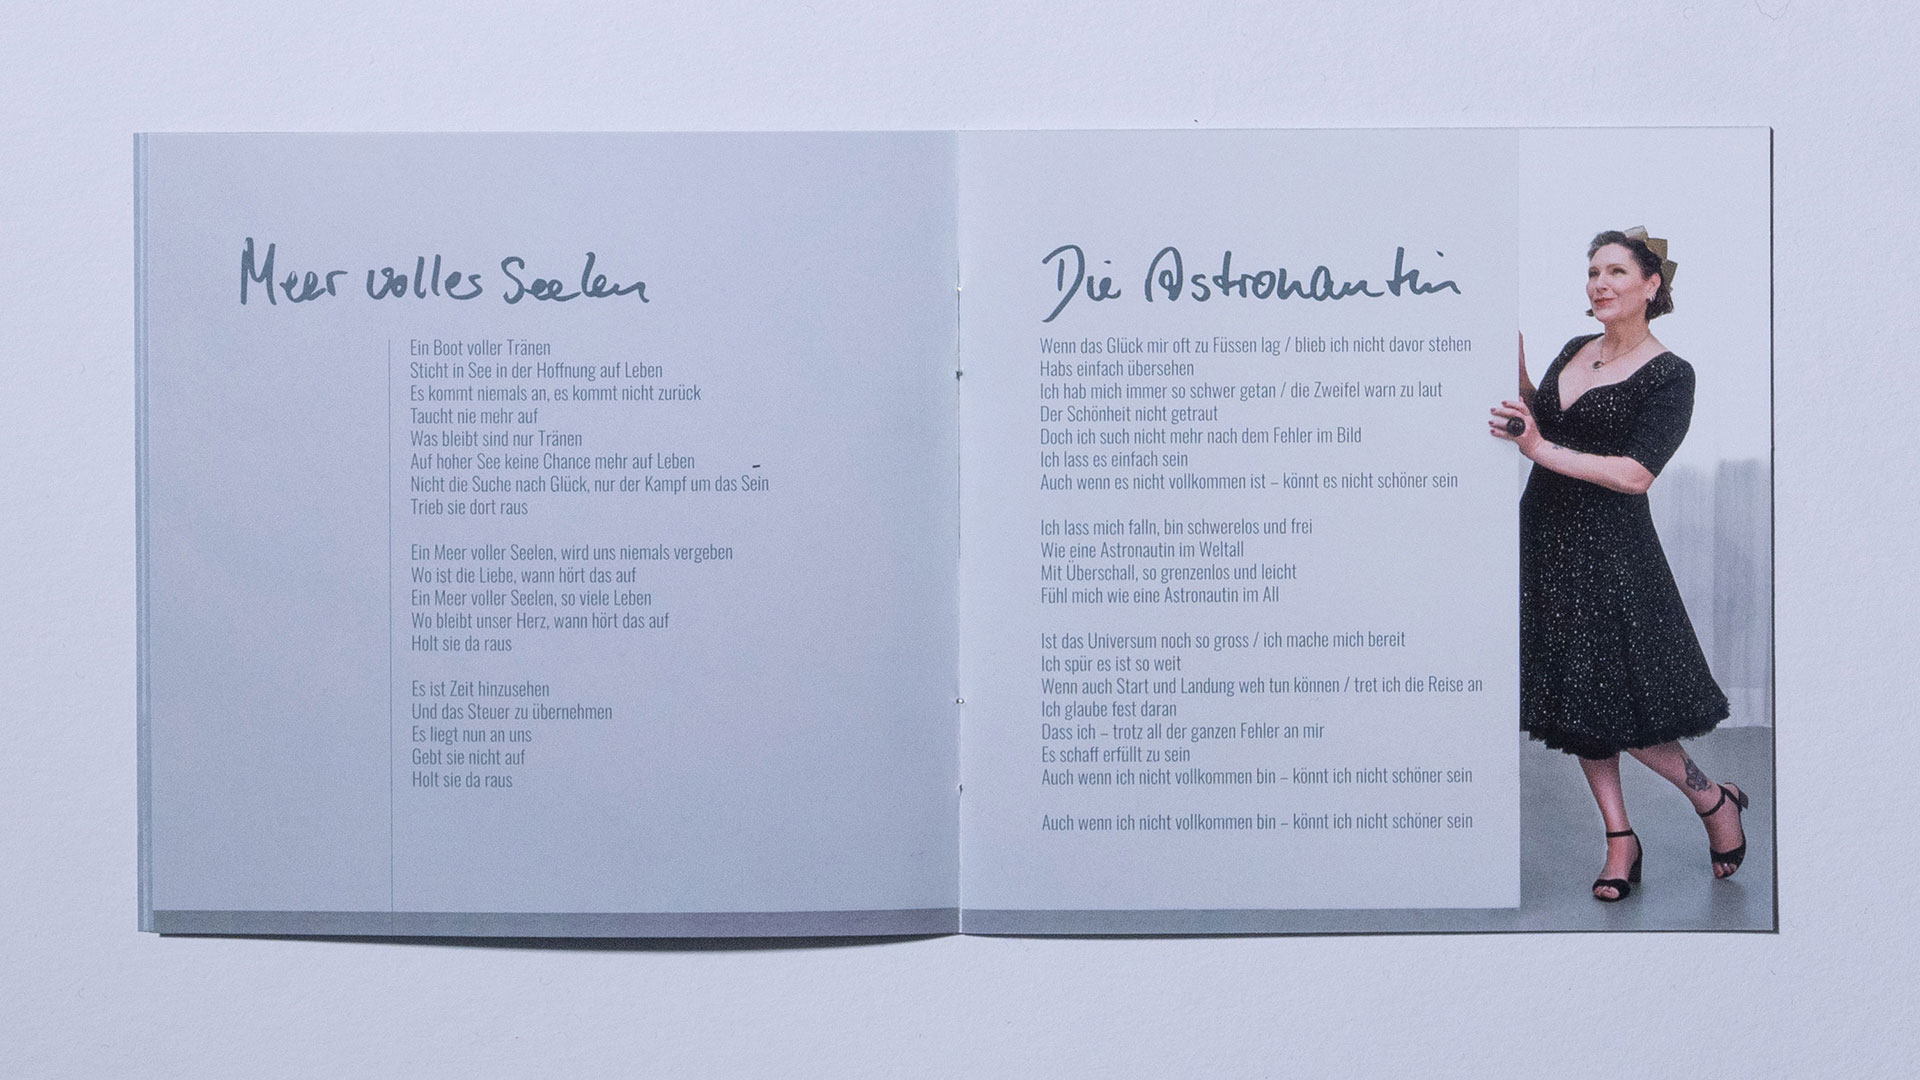 Meer volles Seelen
Ein Boot voller Tränen
Sticht in See in der Hoffnung auf Leben
Es kommt niemals an, es kommt nicht zurück
Taucht nie mehr auf
Was bleibt sind nur Tränen
Auf hoher See keine Chance mehr auf Leben
Nicht die Suche nach Glück, nur der Kampf um das Sein
Trieb sie dort raus
Ein Meer voller Seelen, wird uns niemals vergeben
Wo ist die Liebe, wann hört das auf
Ein Meer voller Seelen, so viele Leben
Wo bleibt unser Herz, wann hört das auf
Holt sie da raus
Es ist Zeit hinzusehen
Und das Steuer zu übernehmen
Es liegt nun an uns
Gebt sie nicht auf
Holt sie da raus
Die Astronautin
Wenn das Glück mir oft zu Füssen lag / blieb ich nicht davor stehen
Habs einfach übersehen
Ich hab mich immer so schwer getan / die Zweifel warn zu laut
Der Schönheit nicht getraut
Doch ich such nicht mehr nach dem Fehler im Bild
Ich lass es einfach sein
Auch wenn es nicht vollkommen ist – könnt es nicht schöner sein
Ich lass mich falln, bin schwerelos und frei
Wie eine Astronautin im Weltall
Mit Überschall, so grenzenlos und leicht
Fühl mich wie eine Astronautin im All
Ist das Universum noch so gross / ich mache mich bereit
Ich spür es ist so weit
Wenn auch Start und Landung weh tun können / tret ich die Reise an
Ich glaube fest daran
Dass ich – trotz all der ganzen Fehler an mir
Es schaff erfüllt zu sein
Auch wenn ich nicht vollkommen bin – könnt ich nicht schöner sein
Auch wenn ich nicht vollkommen bin – könnt ich nicht schöner sein